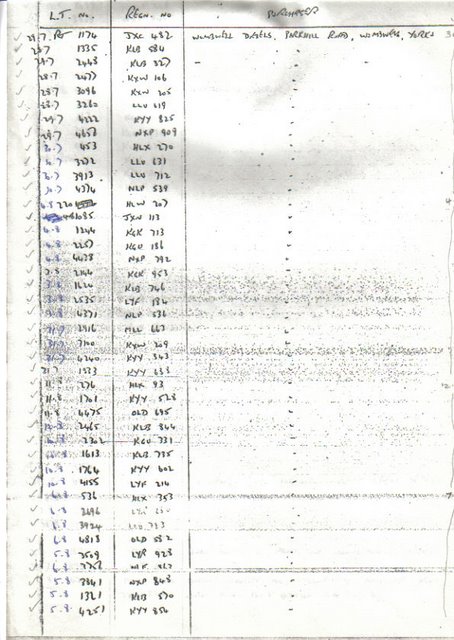 L.T. No. REGN. NO PURCHASER
29.7 RT 1174 JXC 482 WOMBWELL DIESELS, PARKHILL ROAD, WOMBWELL, YORKS
29.7 1335 KLB 584 "
29.7 2448 KLB 327 "
28.7 2477 KXW 106 "
28.7 3096 KXW 205 "
28.7 3260 LLU 619 "
29.7 4222 KYY 825 "
29.7 4658 NXP 909 "
30.7 453 HLX 270 "
30.7 3272 LLU 631 "
30.7 3913 LLU 712 "
30.7 4374 NLP 539 "
4.8 220 HLW 207 "
1085 JXN 113 "
4.8 1244 KGK 713 "
4.8 2257 KGU 186 "
4.8 4438 NXP 792 "
3.8 2144 KGK 953 "
3.8 1620 KLB 746 "
3.8 2535 LYF 134 "
3.8 4371 NLP 536 "
31.7 2916 667 "
31.7 3100 KXW 209 "
31.7 4240 KYY 343 "
31.7 1573 KYY 633 "
11.8 276 HLX 93 "
11.8 1701 KYY 528 "
11.8 4475 OLD 695 "
10.8 2465 KLB 844 "
10.8 2302 KGU 331 "
10.8 1613 KLB 735 "
10.8 1764 KYY 602 "
10.8 4155 LYF 214 "
6.8 536 HLX 353 "
6.8 3696 "
6.8 3924 LLU 723 "
6.8 4818 OLD 582 "
6.8 3509 LYR 928 "
6.8 "
5.8 3841 NXP 848 "
5.8 1321 KLB 570 "
5.8 4251 KYY 854 "